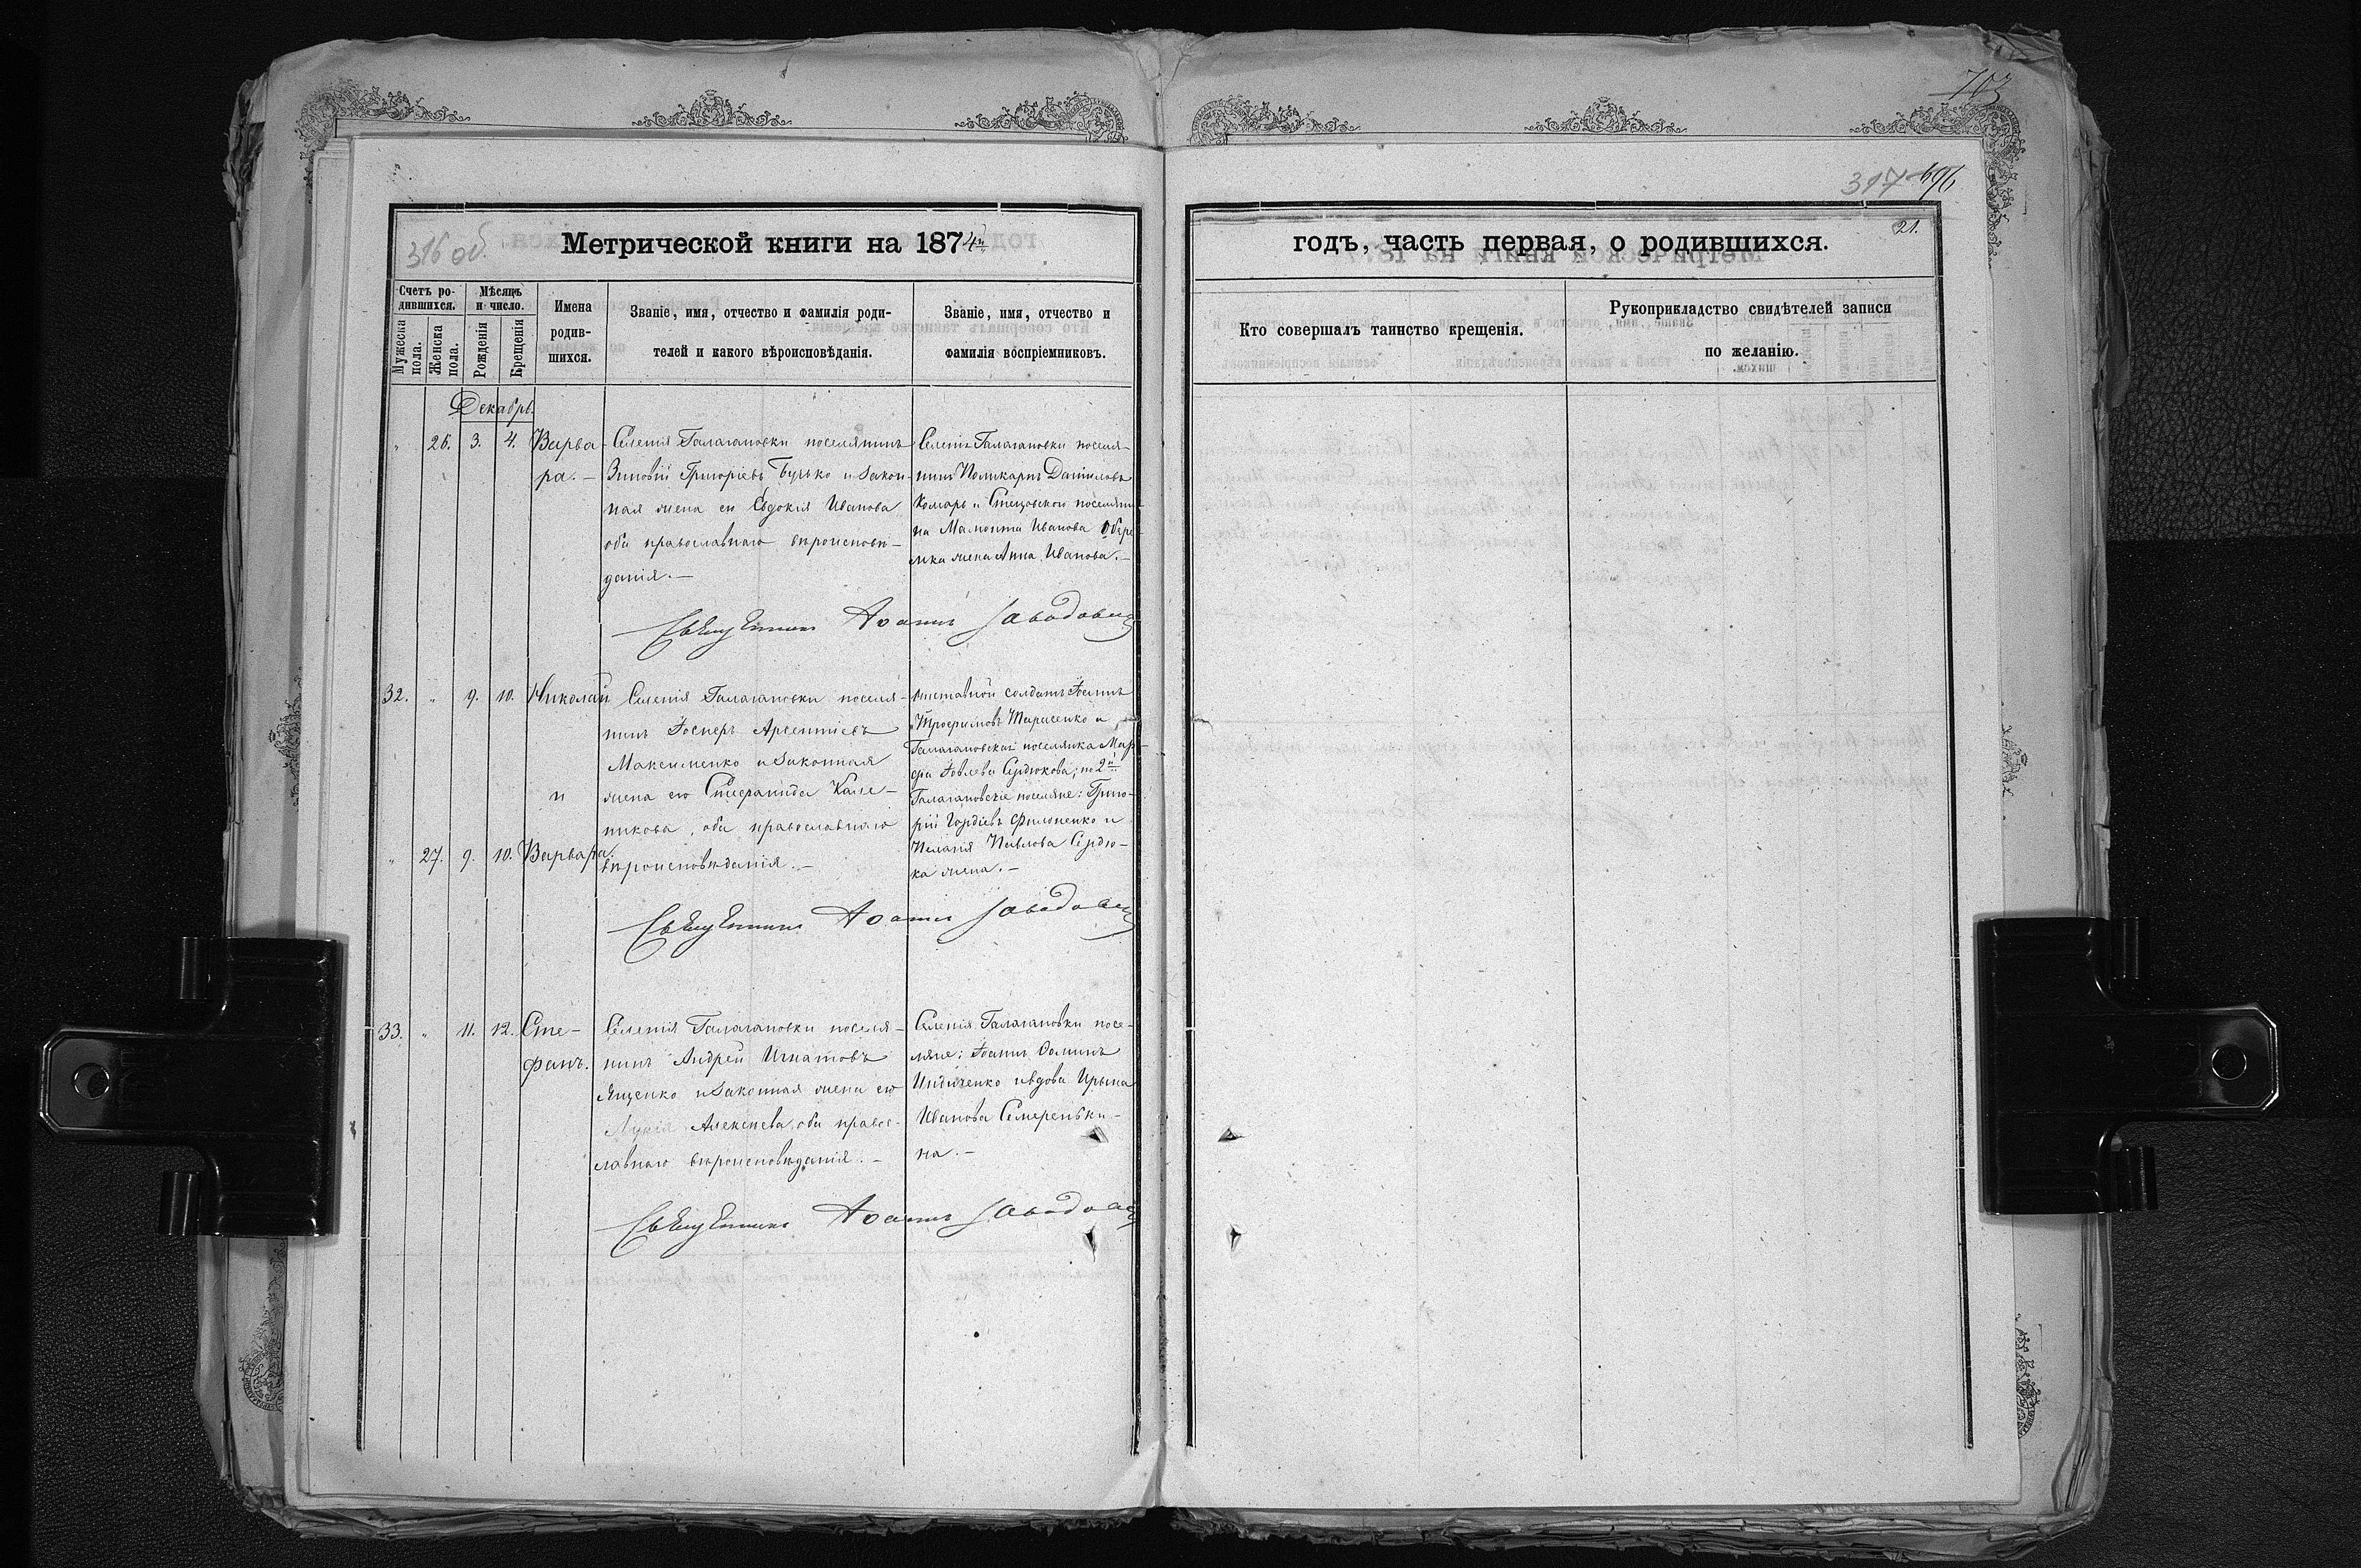 703
317 696
316 об.
Метрической книги на 1874й
годъ, часть первая, о родившихся.
21.
Счетъ ро-
дившихся.
Мужеска
пола.
Женска
пола.
Мѣсяцъ
и число.
Рожденія
Крещенія
Имена
родив-
шихся.
Званіе, имя, отчество и фамилія роди-
телей и какого вѣроисповѣданія.
Званіе, имя, отчество и
фамилія воспріемниковъ.
Кто совершалъ таинство крещенія.
Рукоприкладство свидѣтелей записи
по желанію.
Декабрь.
„ 26. 3. 4. Варва-
ра.—
Селенія Галагановки поселянинъ
Зиновій Григоріевъ и закон-
ная жена ея Евдокія Иванова
оба православнаго вѣроисповѣ-
данія.—
Селенія Галагановки поселя-
нинъ Поликарпъ Даниловъ
Комаръ и поселяни-
на Мамонта Иванова
жена Анна Иванова.—
Священникъ Іоаннъ
32. „ 9. 10. Николай
и
„ 27. 9. 10. Варвара.
Селенія Галагановки поселя-
нинъ Арсентіевъ
Максименко и законная
жена его
никова, оба православнаго
вѣроисповѣданія.—
Отставной солдатъ Іоаннъ
Трофимовъ Тарасенко и
Галагановская поселянка Мар-
фа Сердюкова; по 2й
Галагановскіе поселяне: Григо-
рій Гордіевъ Филоненко и
Пелагія Павлова Сердю-
ка жена.—
Священникъ Іоаннъ
33. „ 11. 12. Сте-
фанъ.
Селенія Галагановки поселя-
нинъ Андрей Игнатовъ
Ященко и законная жена его
Алексѣева, оба право-
славнаго вѣроисповѣданія.—
Селенія Галагановки посе-
ляне: Іоаннъ Ѳоминъ
и вдова Ирина
Иванова
на.—
Священникъ Іоаннъ